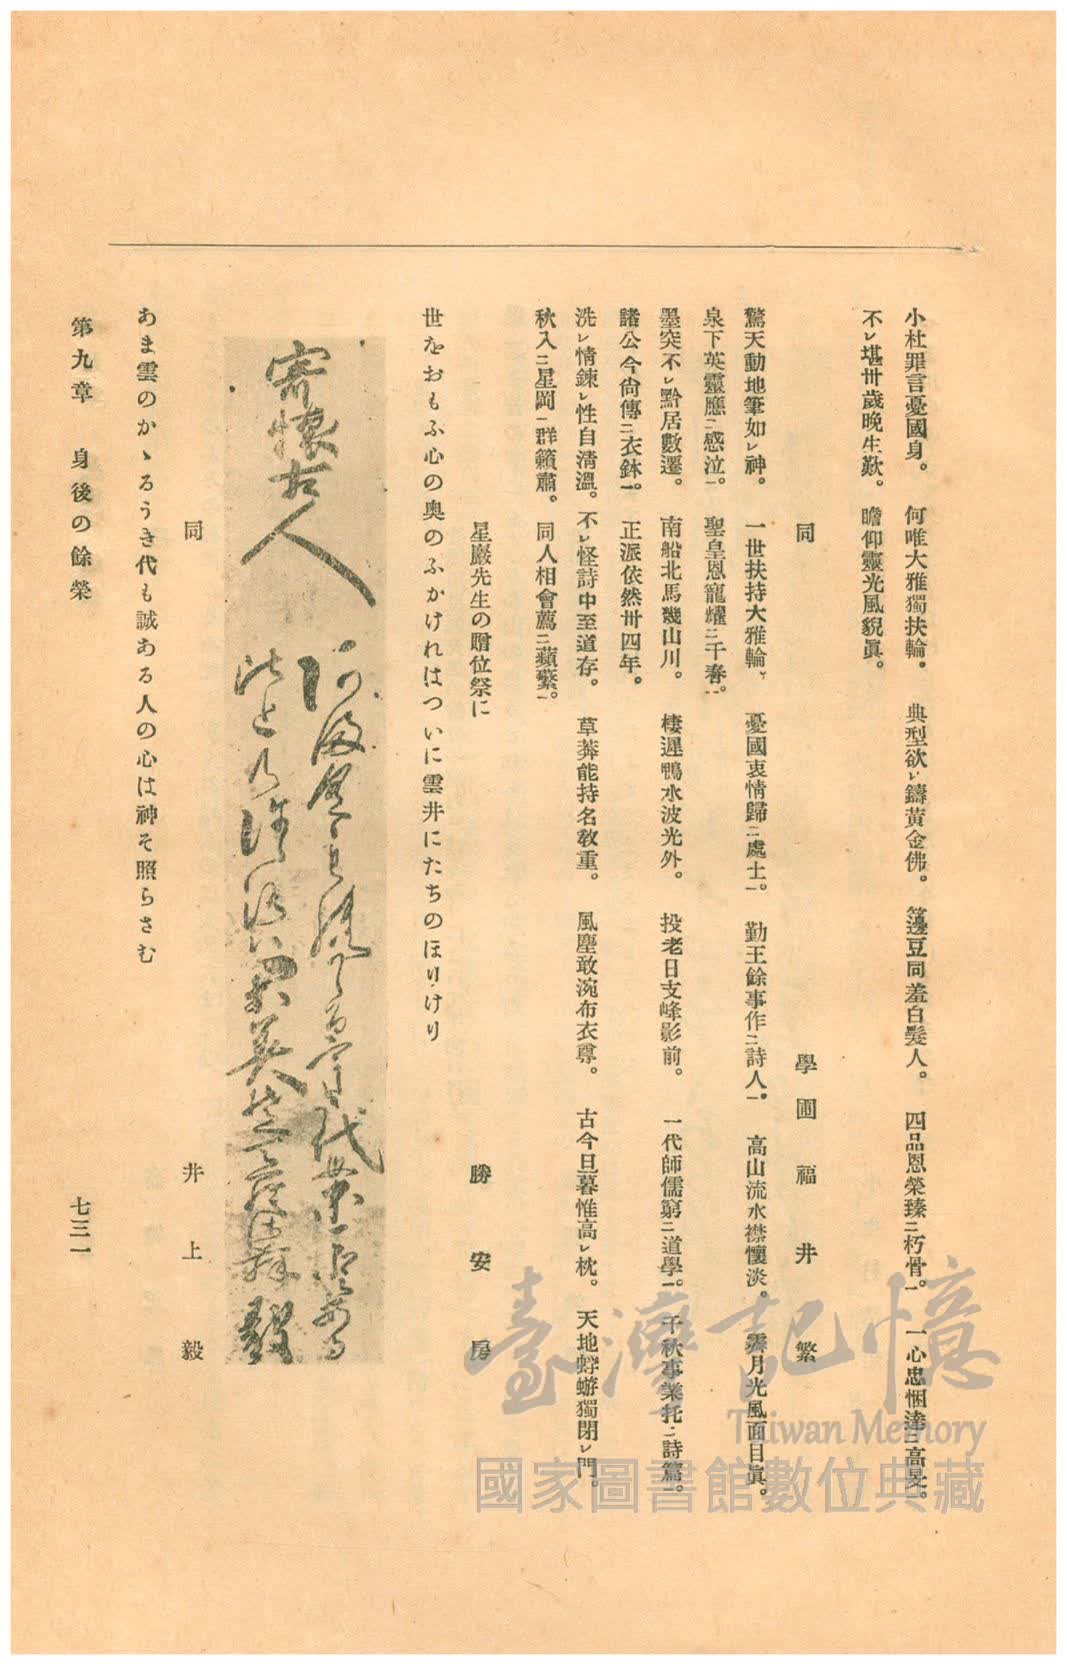 小杜罪言憂國身。　何唯大雅獨扶輪。　典型欲レ鑄黃金佛。　籩豆同羞白髮人。　四品恩榮臻二朽骨一。　一心忠悃達二高旻一。
不レ堪卅歲晚生歎。　瞻仰靈光風貌眞。
同　學圃　福井　繁
驚天動地筆如レ神。　一世扶持大雅輪。　憂國衷情歸二處士一。　勤王餘事作二詩人一。　高山流水襟懷淡。　霽月光風面目眞。
泉下英靈應二感泣一。　聖皇恩寵耀二千春一。
墨突不レ黔居數遷。　南船北馬幾山川。　棲遲鴨水波光外。　投老日支峰影前。　一代師儒窮二道學一。　千秋事業托二詩篇一。
諸公今尙傳二衣鉢一。　正派依然卅四年。
洗レ情鍊レ性自清溫。　不レ怪詩中至道存。　草莽能持名敎重。　風塵敢涴布衣尊。　古今旦暮惟高レ枕。　天地蜉蝣獨閉レ門。
秋入二星岡一群籟肅。　同人相會薦二蘋蘩一。
星巖先生の贈位祭に
勝安房
世をおもふ心の奧のふかけれはついに雲井にたちのほりけり
寄懷古人
毅
同　井上毅
あま雲のかゝるうき代も誠ある人の心は神そ照らさむ
第九章　身後の餘榮　七三一
臺灣記憶
Taiwan Memory
國家圖書館數位典藏